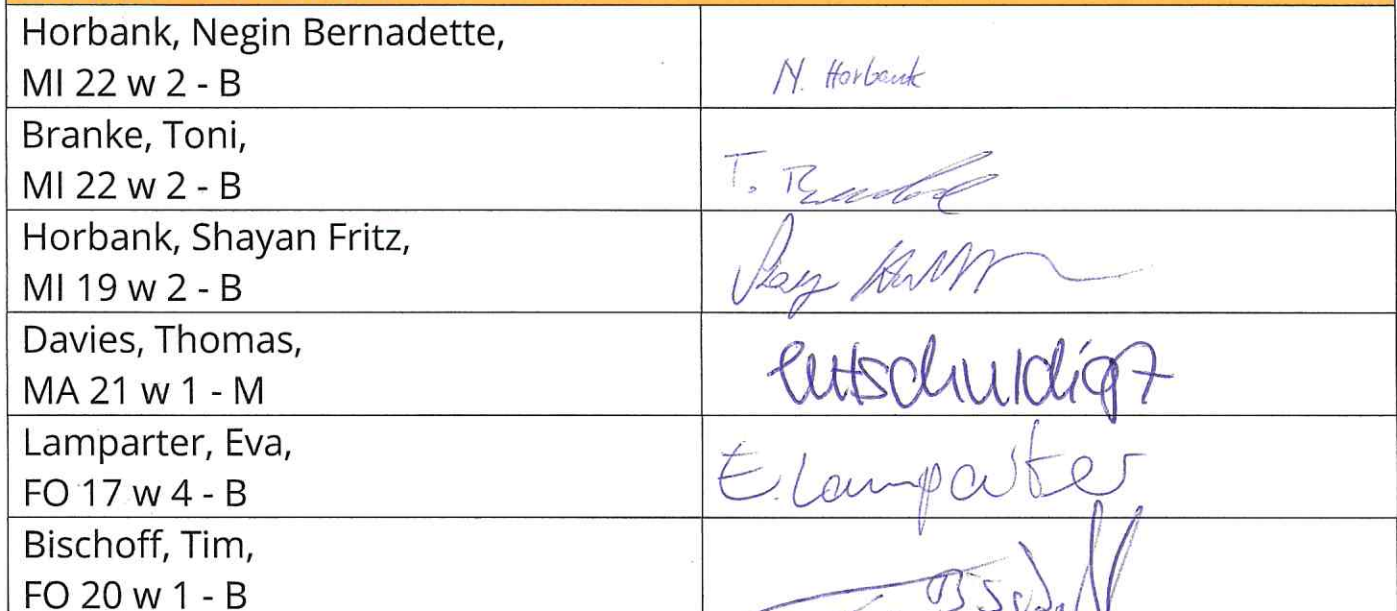 Horbank, Negin Bernadette,
MI 22 w 2 - B
N. Horbank
Branke, Toni,
MI 22 w 2 - B
T.
Horbank, Shayan Fritz,
MI 19 w 2 - B
Davies, Thomas,
MA 21 w 1 - M
entschuldigt
Lamparter, Eva,
FO 17 w 4 - B
E. Lamparter
Bischoff, Tim,
FO 20 w 1 - B